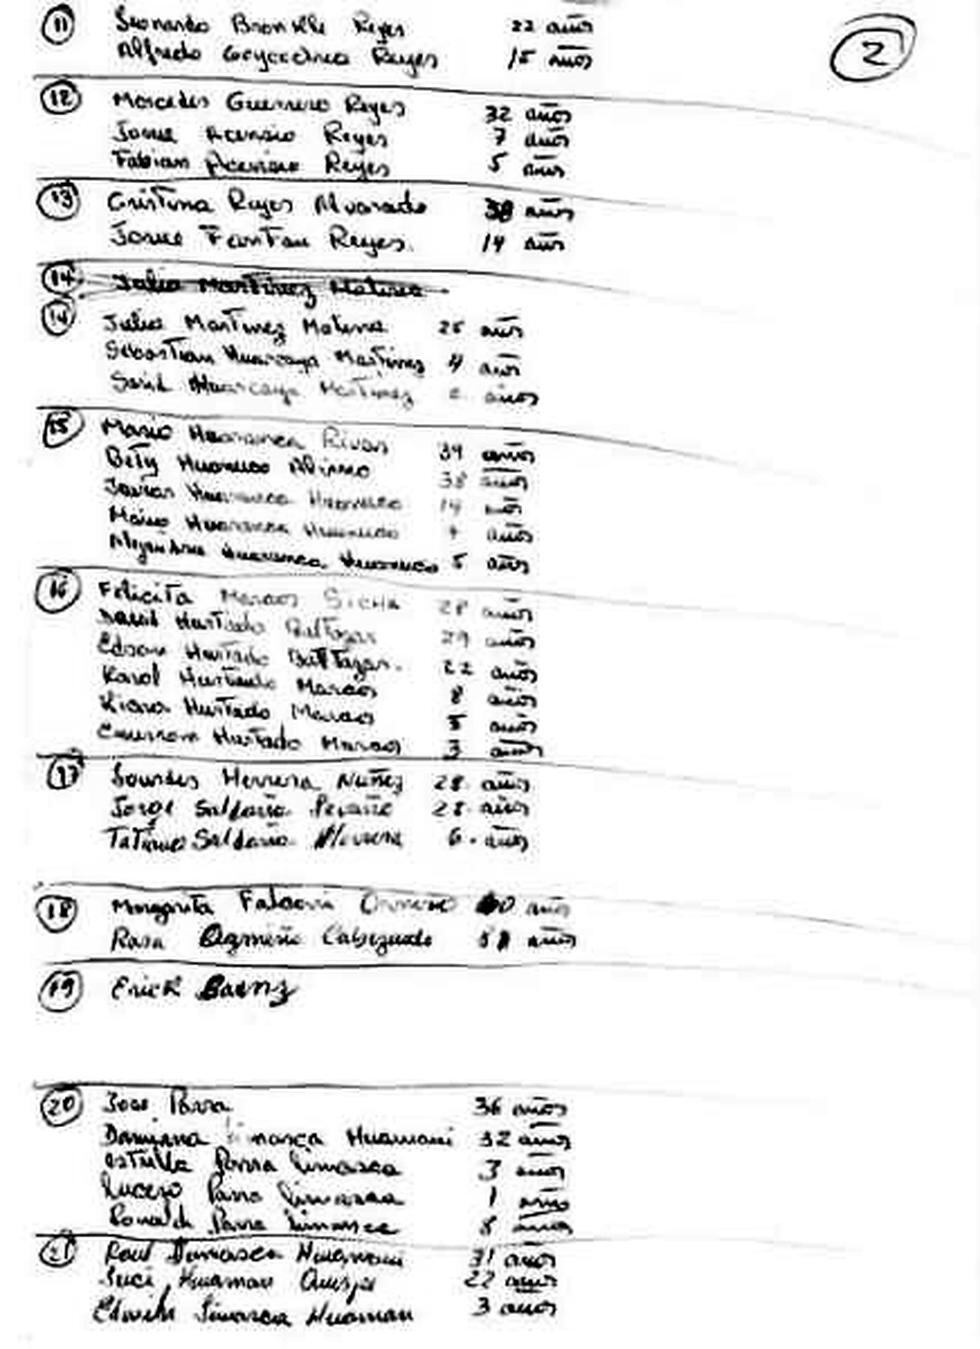 11 Leonardo Reyes 22 años
2
Alfredo Goycochea Reyes 15 años
12 Mercedes Guerrero Reyes 32 años
Josue Acensio Reyes 7 años
Fabian Acensio Reyes 5 años
13 Cristina Reyes Alvarado años
Josue Reyes. 14 años
14 Julia Martinez Molina
14 Julia Martinez Molina 25 años
Sebastian Huarcaya Martinez 4 años
Huarcaya Martinez años
15 Mario Huaranca Rivas 39 años
Bety Huanuco 38 años
Huaranca Huanuco 14 años
Huaranca Huanuco años
Huaranca Huanuco 5 años
16 Felicita Marcos 28 años
David Hurtado Baltazar 29 años
Edson Hurtado Baltazar. 22 años
Karol Hurtado Marcos 8 años
Kiara Hurtado Marcos 5 años
Emerson Hurtado Marcos 3 años
17 Lourdes Herrera Nuñez 28 años
Jorge Saldaña 28 años
Saldaña Herrera 6 años
18 Margarita años
Rosa años
19 Erick Saenz
20 Jose Parra 36 años
Damiana Limasca Huamani 32 años
estrella Parra Limasca 3 años
Lucero Parra Limasca 1 año
Ronald Parra Limasca 8 años
21 Raul Limasca Huamani 31 años
Luci Huaman Quispe 22 años
Edwin Limasca Huaman 3 años